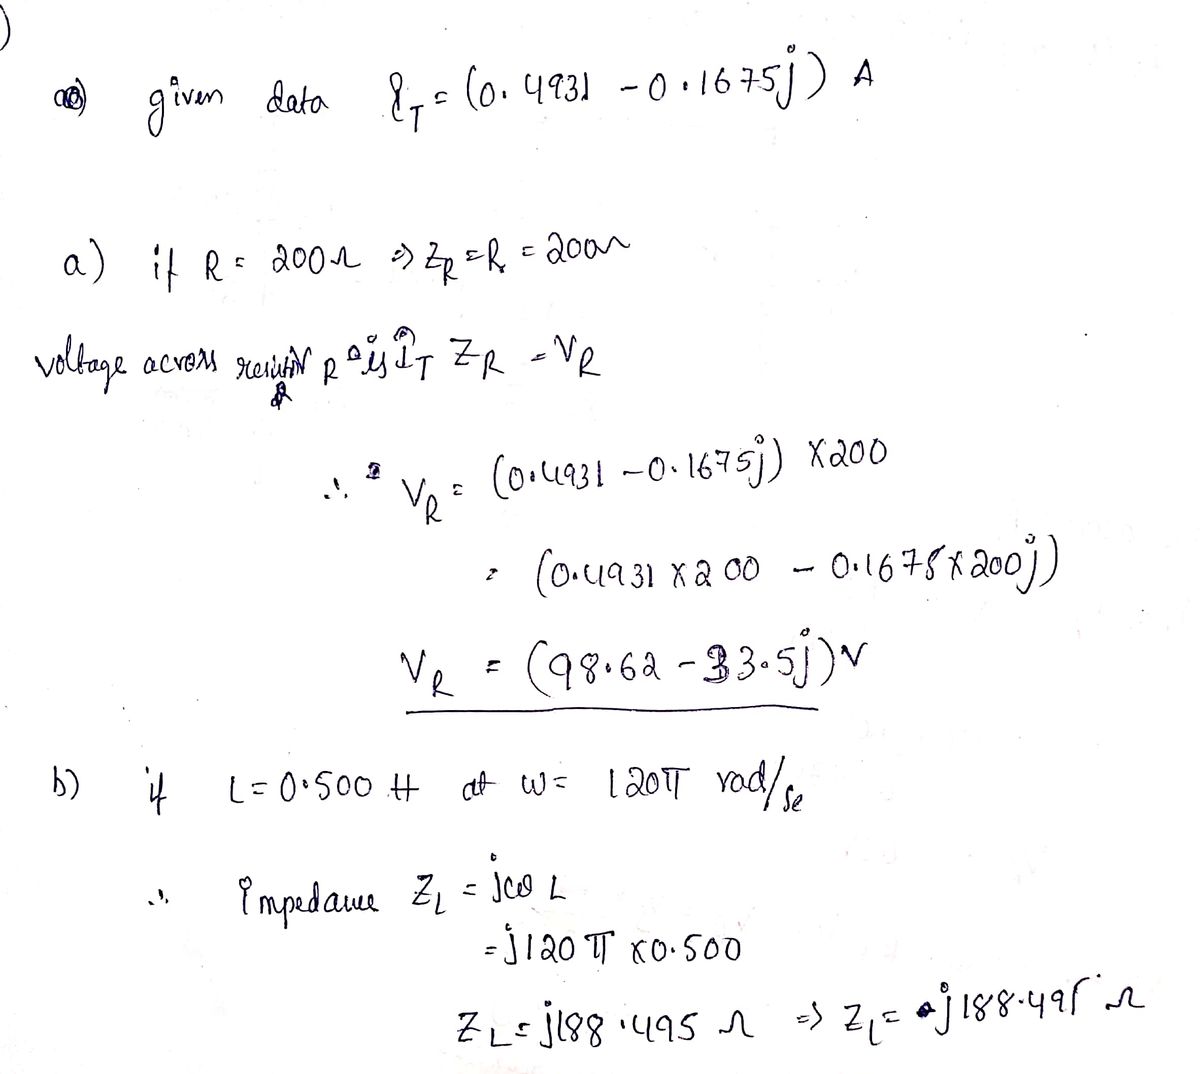 )
a) given data I_T = (0.4931 - 0.1675j) A
a) if R = 200Ω ⇒ Z_R = R = 200Ω
voltage across resistor R is I_T Z_R = V_R
∴ V_R = (0.4931 - 0.1675j) x200
= (0.4931 x 200 - 0.1675 x 200j)
V_R = (98.62 - 33.5j) V
b) if L = 0.500 H at ω = 120π rad/se
∴ Impedance Z_L = jω L
= j120 π x0.500
Z_L = j188.495 Ω ⇒ Z_L = j188.495 Ω